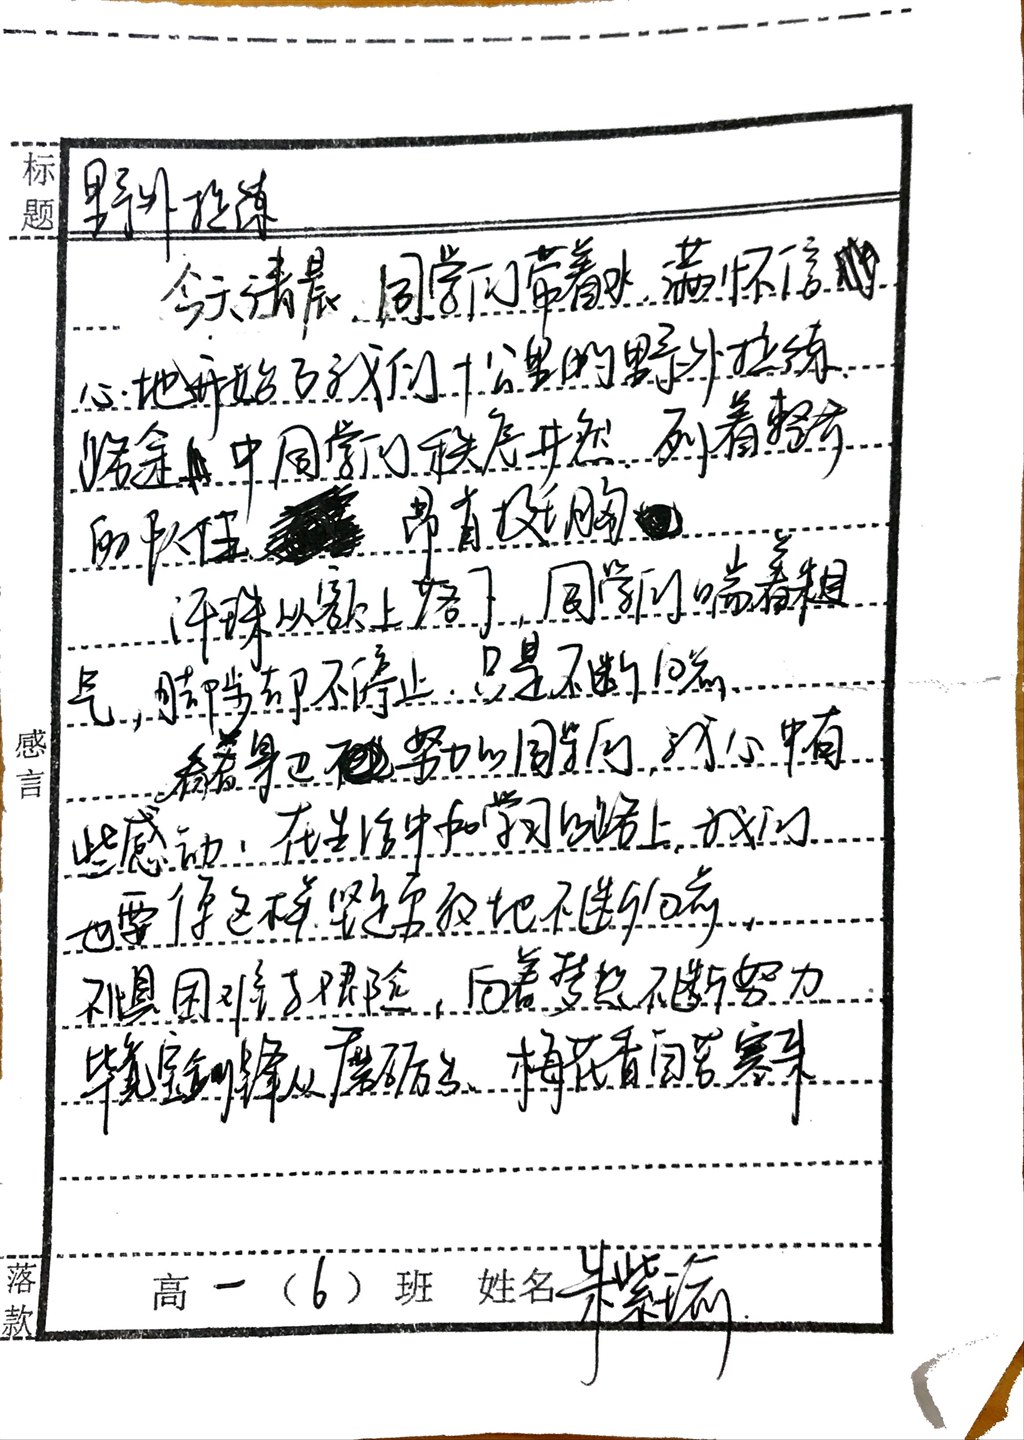 标题
野外拉练
今天清晨,同学们带着水,满怀信
心地开始了我们十公里的野外拉练.
路途中同学们秩序井然.列着整齐
的队伍 昂首挺胸
汗珠从额上落下,同学们喘着粗
气,脚步却不停止.只是不断向前.
看着身边努力的同学们,我心中有
些感动.在生活中和学习的路上,我们
也要像这样坚定勇敢地不断向前,
不惧困难与艰险,向着梦想不断努力
毕竟宝剑锋从磨砺出、梅花香自苦寒来
感言
落款
高一(6)班 姓名朱紫